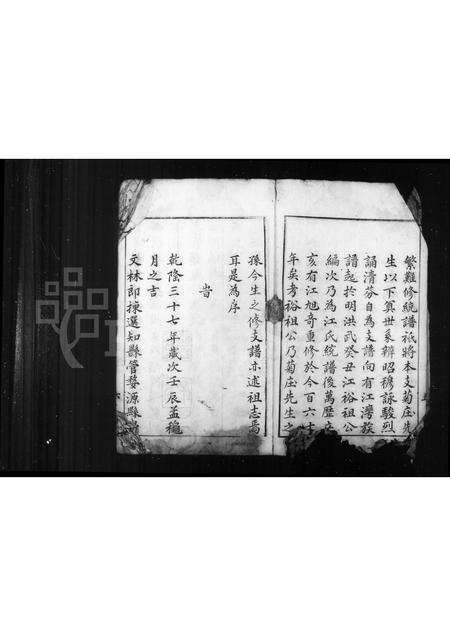 繁難修統譜祇將本支菊庄先
生以下奠世系辨昭穆詠駿烈
誦清芬自為支譜向有江灣族
譜起於明洪武癸丑江裕祖公
編次乃為江氏統譜後萬歷
亥有江旭奇重修於今百六十
年矣考裕祖公乃菊庄先生之
孫今生之修支譜亦述祖志焉
耳是為序
旹
乾隆三十七年歲次壬辰孟穐
月之吉
文林郎揀選知縣管婺源縣